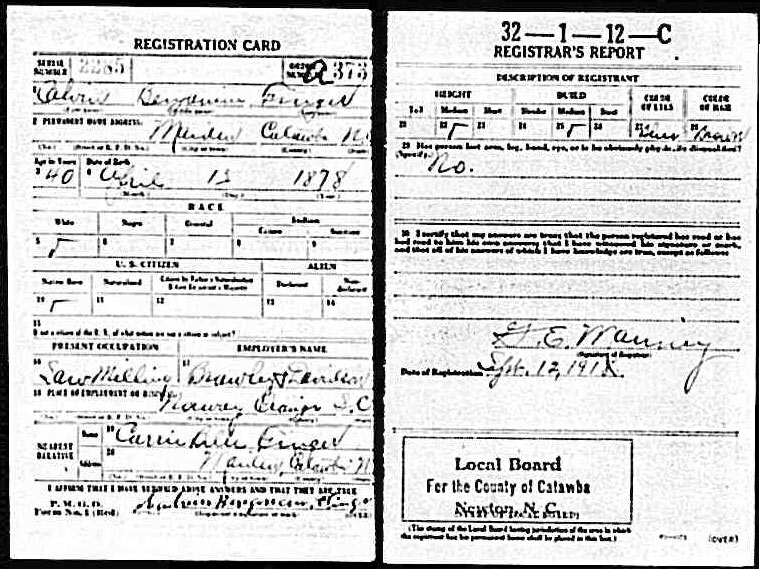 REGISTRATION CARD
SERIAL NUMBER 2285
ORDER NUMBER A 373
Calvin Benjamin Finger
2 PERMANENT HOME ADDRESS:
Maiden Catawba N.C.
Age in Years Date of Birth
3 40 4 April 13 1878
(Month.) (Day.) (Year.)
RACE
White Negro Oriental Indian
Citizen Noncitizen
5 6 7 8 9
U. S. CITIZEN ALIEN
Native Born Naturalized Citizen by Father's Naturalization Before Registrant's Majority Declarant Non-declarant
10 11 12 13 14
15
If not a citizen of the U. S., of what nation are you a citizen or subject?
PRESENT OCCUPATION EMPLOYER'S NAME
16 Saw Milling 17 Brawley & Davidson
18 PLACE OF EMPLOYMENT OR BUSINESS:
S.C.
NEAREST RELATIVE
Name 19 Finger
Address 20 Maiden, Catawba N.
I AFFIRM THAT I HAVE VERIFIED ABOVE ANSWERS AND THAT THEY ARE TRUE
P. M. G. O.
Form No. 1 (Red)
Benjamin Finger
32—1—12—C
REGISTRAR'S REPORT
DESCRIPTION OF REGISTRANT
HEIGHT BUILD COLOR OF EYES COLOR OF HAIR
Tall Medium Short Slender Medium Stout
21 22 23 24 25 26 27 Blue 28 Brown
29 Has person lost arm, leg, hand, eye, or is he obviously physically disqualified?
(Specify.) No.
30 I certify that my answers are true; that the person registered has read or has
had read to him his own answers; that I have witnessed his signature or mark,
and that all of his answers of which I have knowledge are true, except as follows:
G. E. Manning
(Signature of Registrar)
Date of Registration Sept. 12, 1918
Local Board
For the County of Catawba
Newton, N. C.
(STAMP OF LOCAL BOARD)
(The stamp of the Local Board having jurisdiction of the area in which
the registrant has his permanent home shall be placed in this box.)
(OVER)